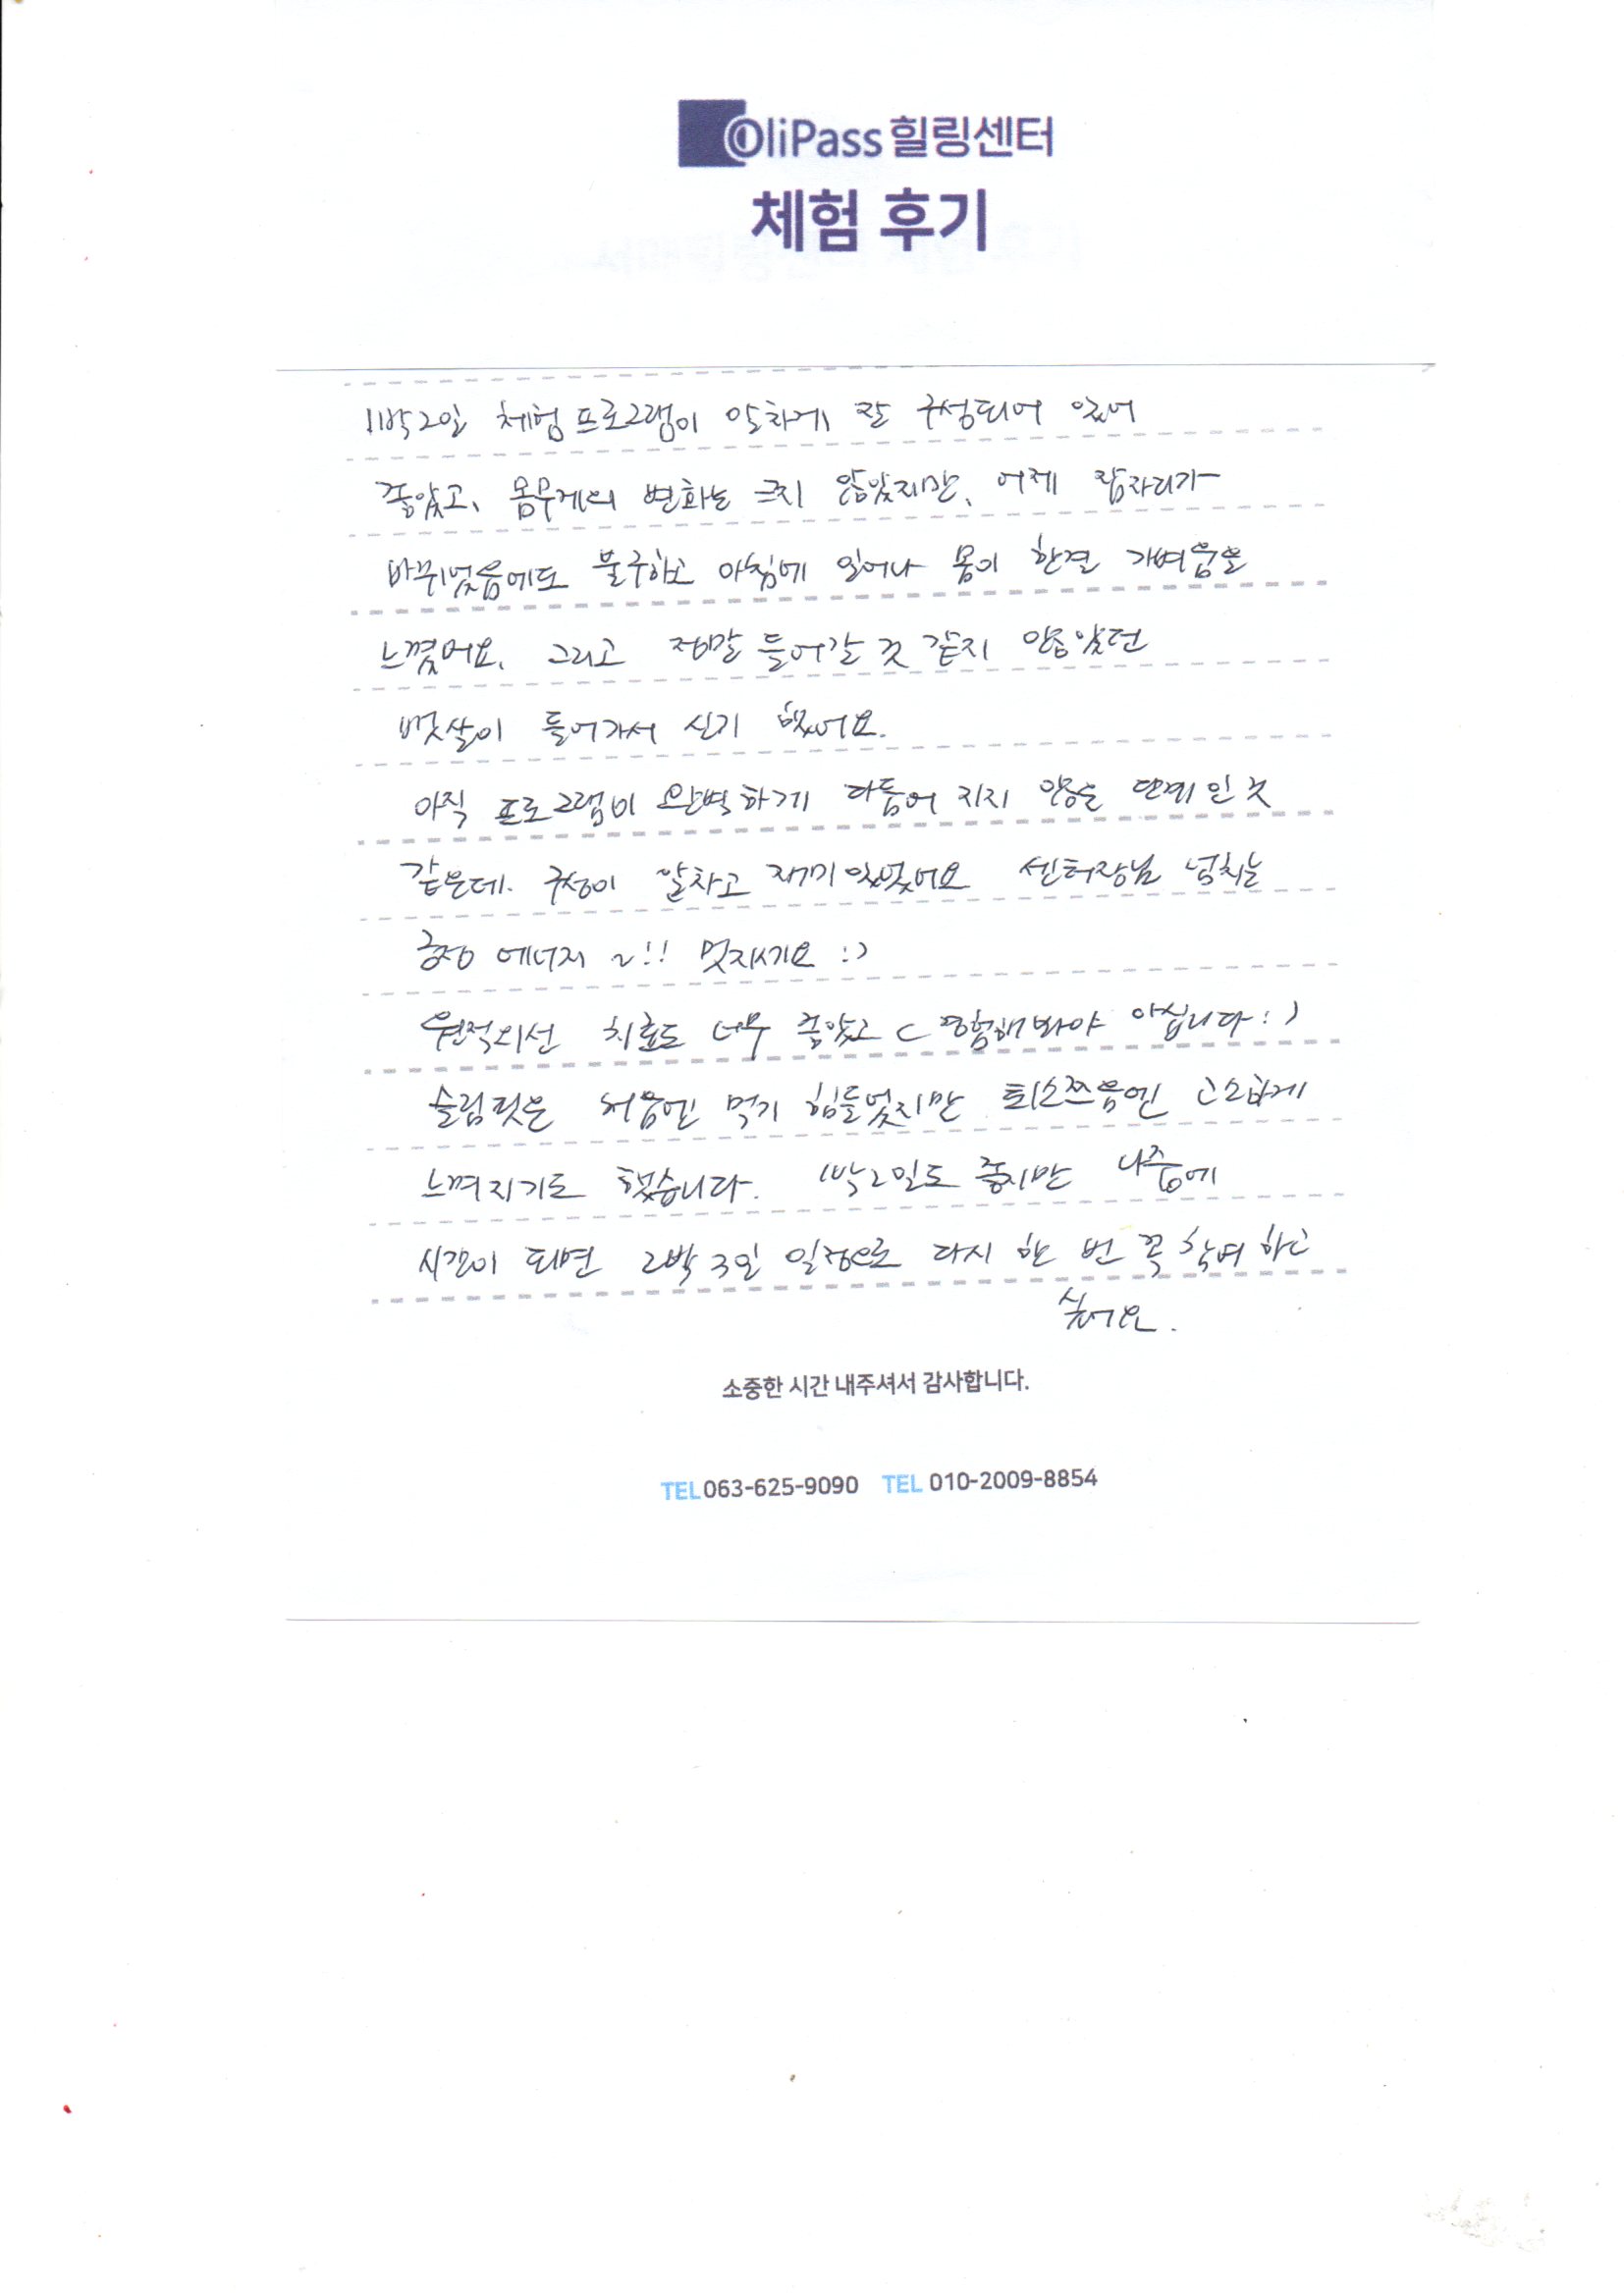 OliPass 힐링센터
체험 후기
1박2일 체험 프로그램이 알차게 잘 구성되어 있어
좋았고, 몸무게의 변화는 크지 않았지만, 어제 잠자리가
바뀌었음에도 불구하고 아침에 일어나 몸이 한결 가벼움을
느꼈어요. 그리고 정말 들어갈 것 같지 않았던
뱃살이 들어가서 신기 했어요.
아직 프로그램이 완벽하게 다듬어 지지 않은 단계인 것
같은데. 구성이 알차고 재미있었어요 센터장님 넘치는
긍정 에너지 ~!! 멋지세요 :)
원적외선 치료도 너무 좋았고 ( 경험해봐야 아십니다 : )
슬림핏은 처음엔 먹기 힘들었지만 퇴소쯤엔 고소하게
느껴지기도 했습니다. 1박2일도 좋지만 나중에
시간이 되면 2박 3일 일정으로 다시 한 번 꼭 참여 하고
싶어요.
소중한 시간 내주셔서 감사합니다.
TEL 063-625-9090 TEL 010-2009-8854